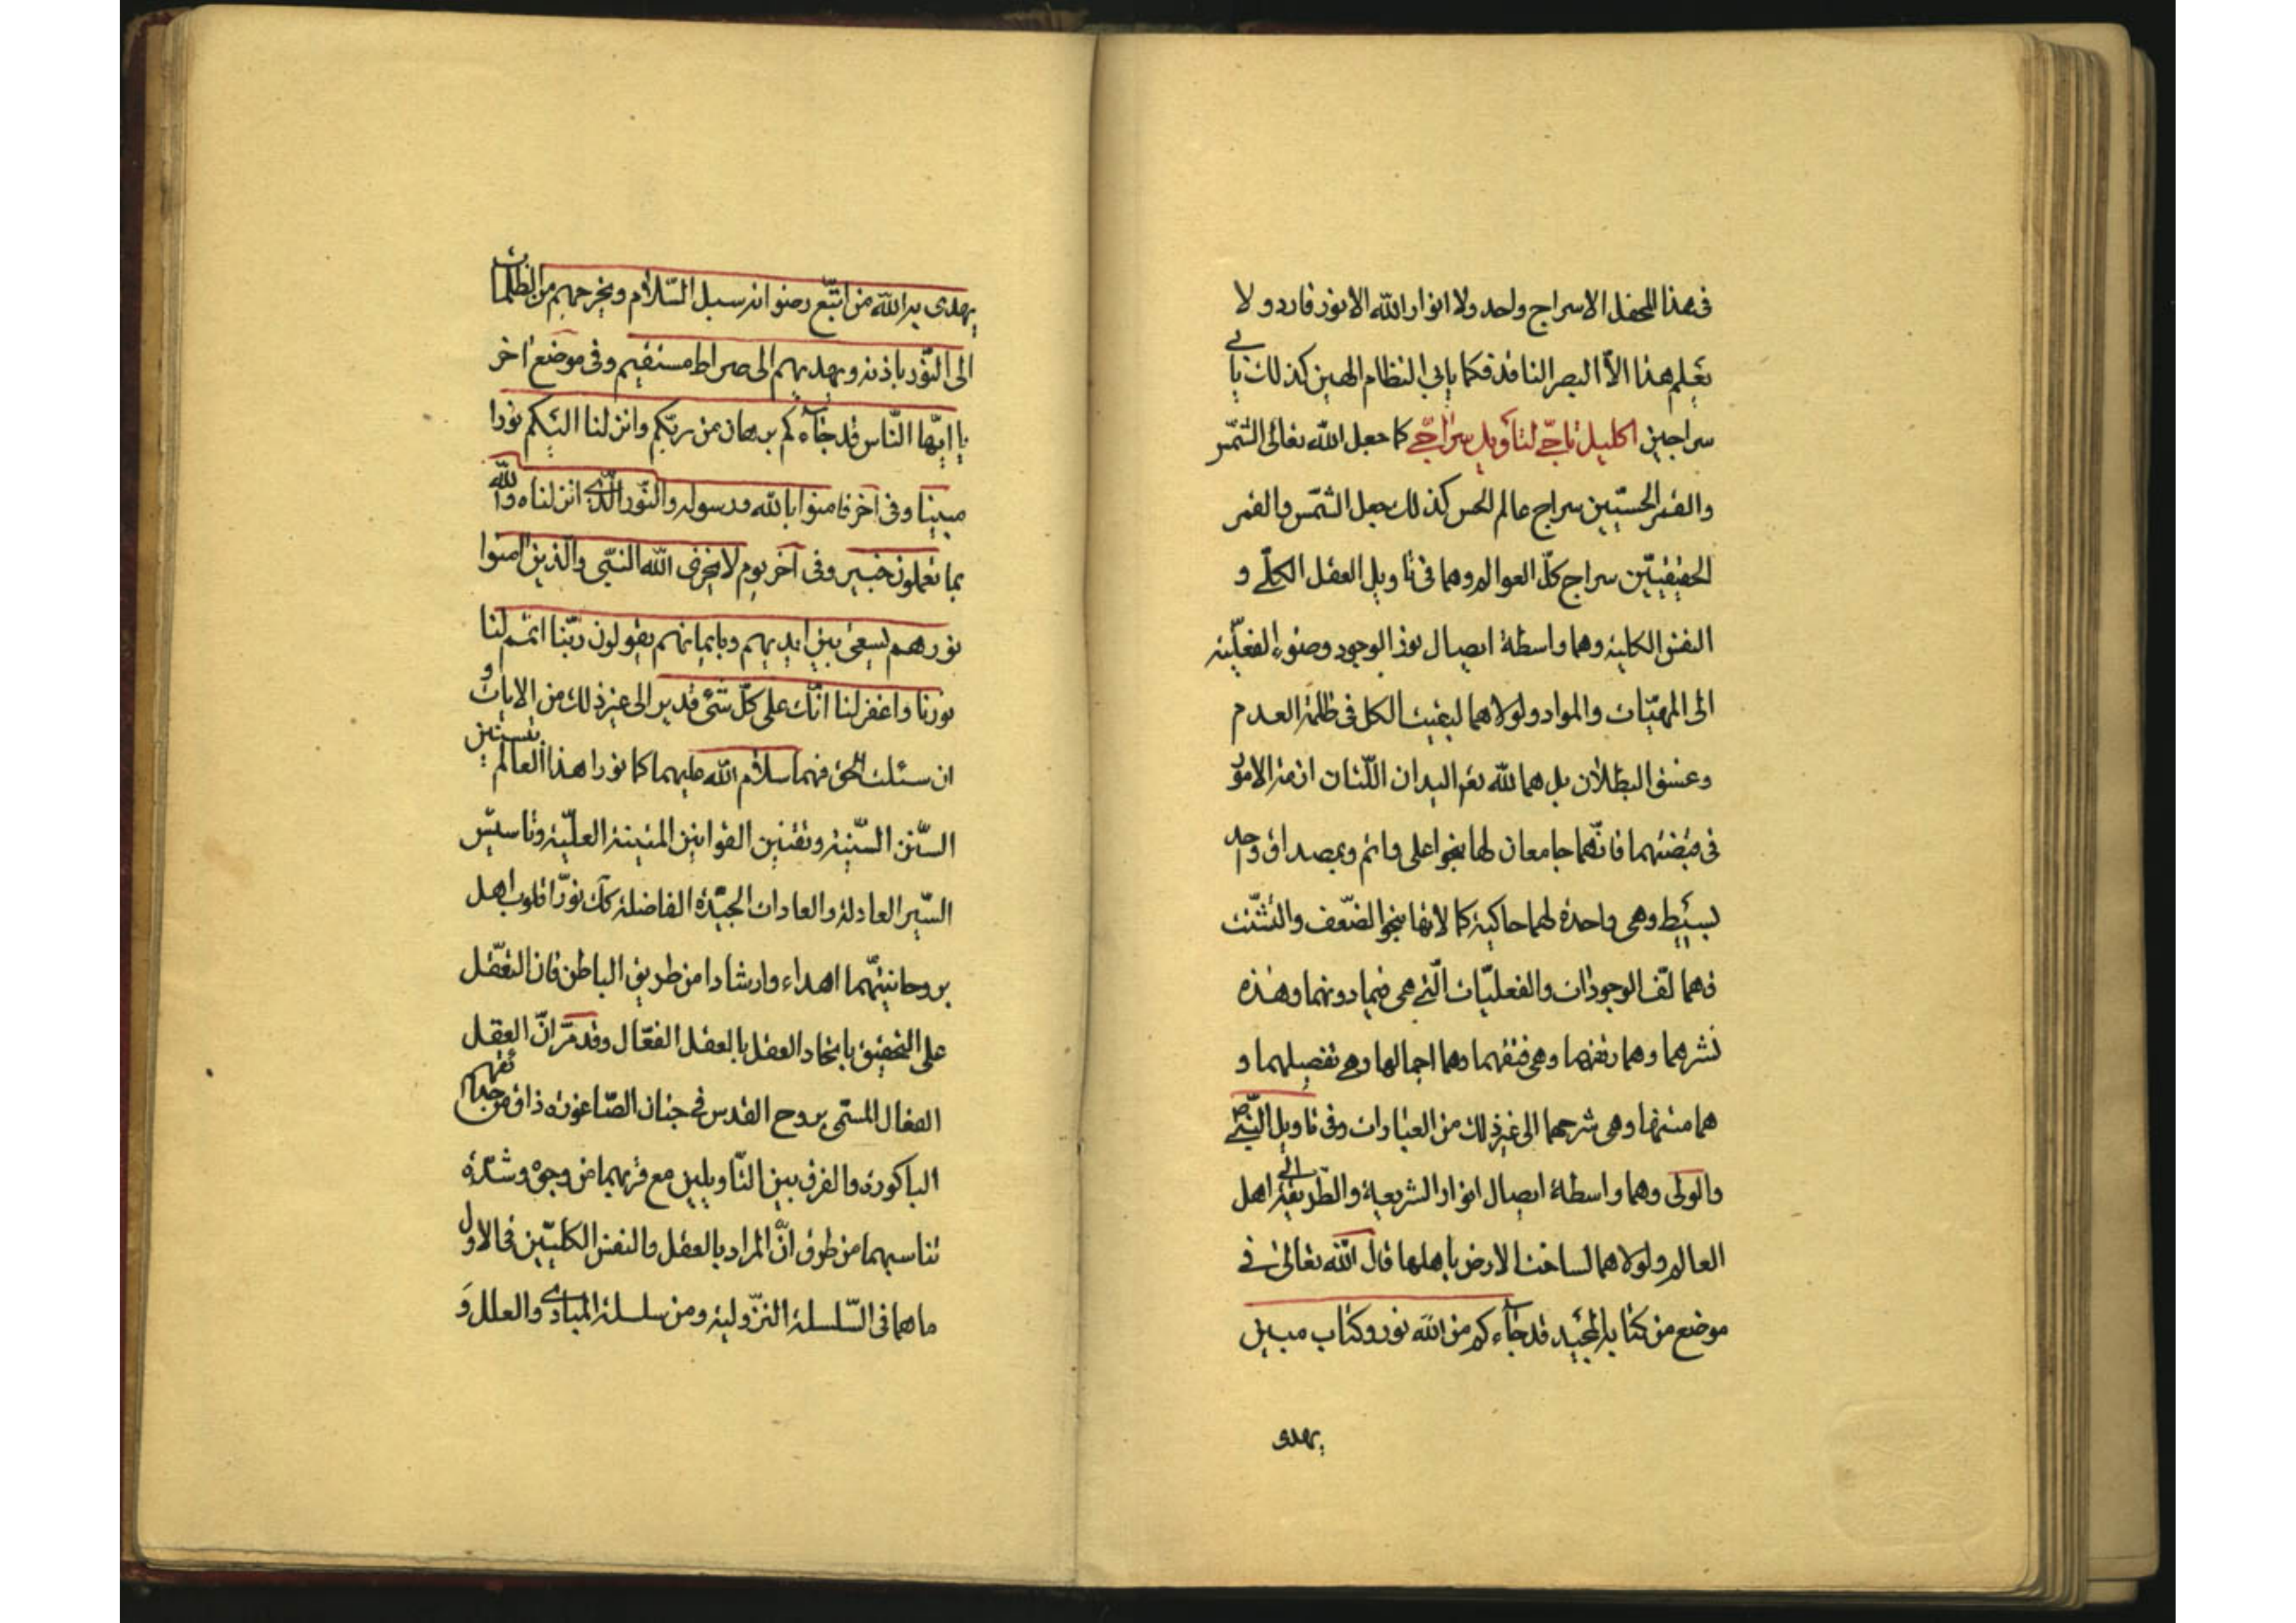 فى هذا المحفل الا سراج واحد ولا انوار الله الا نور فارد و لا
يعلم هذا الّا البصر النافذ فكما يابى النظام الهين كذلك يابى
سراجين اكليل تاجّى لتاويل سراجّى كما جعل الله تعالى الشمس
والقمر الحسيّين سراج عالم الحس كذلك جعل الشمس والقمر
الحقيقيّين سراج كلّ العوالم وهما فى تاويل العقل الكلّى و
النفس الكلية وهما واسطة ايصال نور الوجود وضوء الفعلّية
الى المهيّات والمواد ولولاهما لبقيت الكل فى ظلمة العدم
وغسق البطلان بل هما لله تعالى اليدان اللّتان ازمة الامور
فى قبضتهما فانّهما جامعان لها بنحو اعلى واتم وبمصداق واحد
بسيط وهى واحدة لهما حاكية كمالاتها بنحو الضّعف والتشتّت
فهما لفّ الوجودات والفعليّات الّتى هى فيما دونهما وهذه
نشرهما وهما رتقها وهى فتقهما وهما اجمالها وهى تفصيلهما و
هما متنها وهى شرحهما الى غير ذلك من العبارات وفى تاويل النّبى ص
والولى وهما واسطة ايصال انوار الشريعة والطّريقة الى اهل
العالم ولولاهما لساخت الارض باهلها قال الله تعالى فى
موضع من كتابه المجيد قد جاءكم من الله نور وكتاب مبين
يهدى
يهدى به الله من اتّبع رضوانه سبل السّلام ويخرجهم من الظلمات
الى النّور باذنه ويهديهم الى صراط مستقيم وفى موضع اخر
يا ايّها النّاس قد جاءكم برهان من ربّكم وانزلنا اليكم نورا
مبينا وفى آخر فامنوا بالله ورسوله والنّور الّذى انزلناه والله
بما تعملون خبير وفى آخر يوم لا يخزى الله النبّى والذين آمنوا
نورهم يسعى بين ايديهم وبايمانهم يقولون ربّنا اتمم لنا
نورنا واغفر لنا انّك على كلّ شئ قدير الى غير ذلك من الايات و
ان سئلت الحق فهما سلام الله عليهما كما نورا هذا العالم بتسنين
السّنن السّنية وتقنين القوانين المتينة العلّية وتاسيس
السّير العادلة والعادات الجيّدة الفاضلة كك نوّرا قلوب اهل
بروحانيتهّما اهداء وارشادا من طريق الباطن فان التعقّل
على التحقيق باتحاد العقل بالعقل الفعّال وقد مرّ انّ العقل
الفعال المسمّى بروح القدس فى جنان الصّاغورة ذاق من حدائقهم
الباكورة والفرق بين التّاويلين مع قربهما من وجوه وشدّة
تناسبهما من طرق انّ المراد بالعقل والنفس الكليّين فى الاول
ما هما فى السّلسلة النزّولية ومن سلسلة المبادى والعلل و